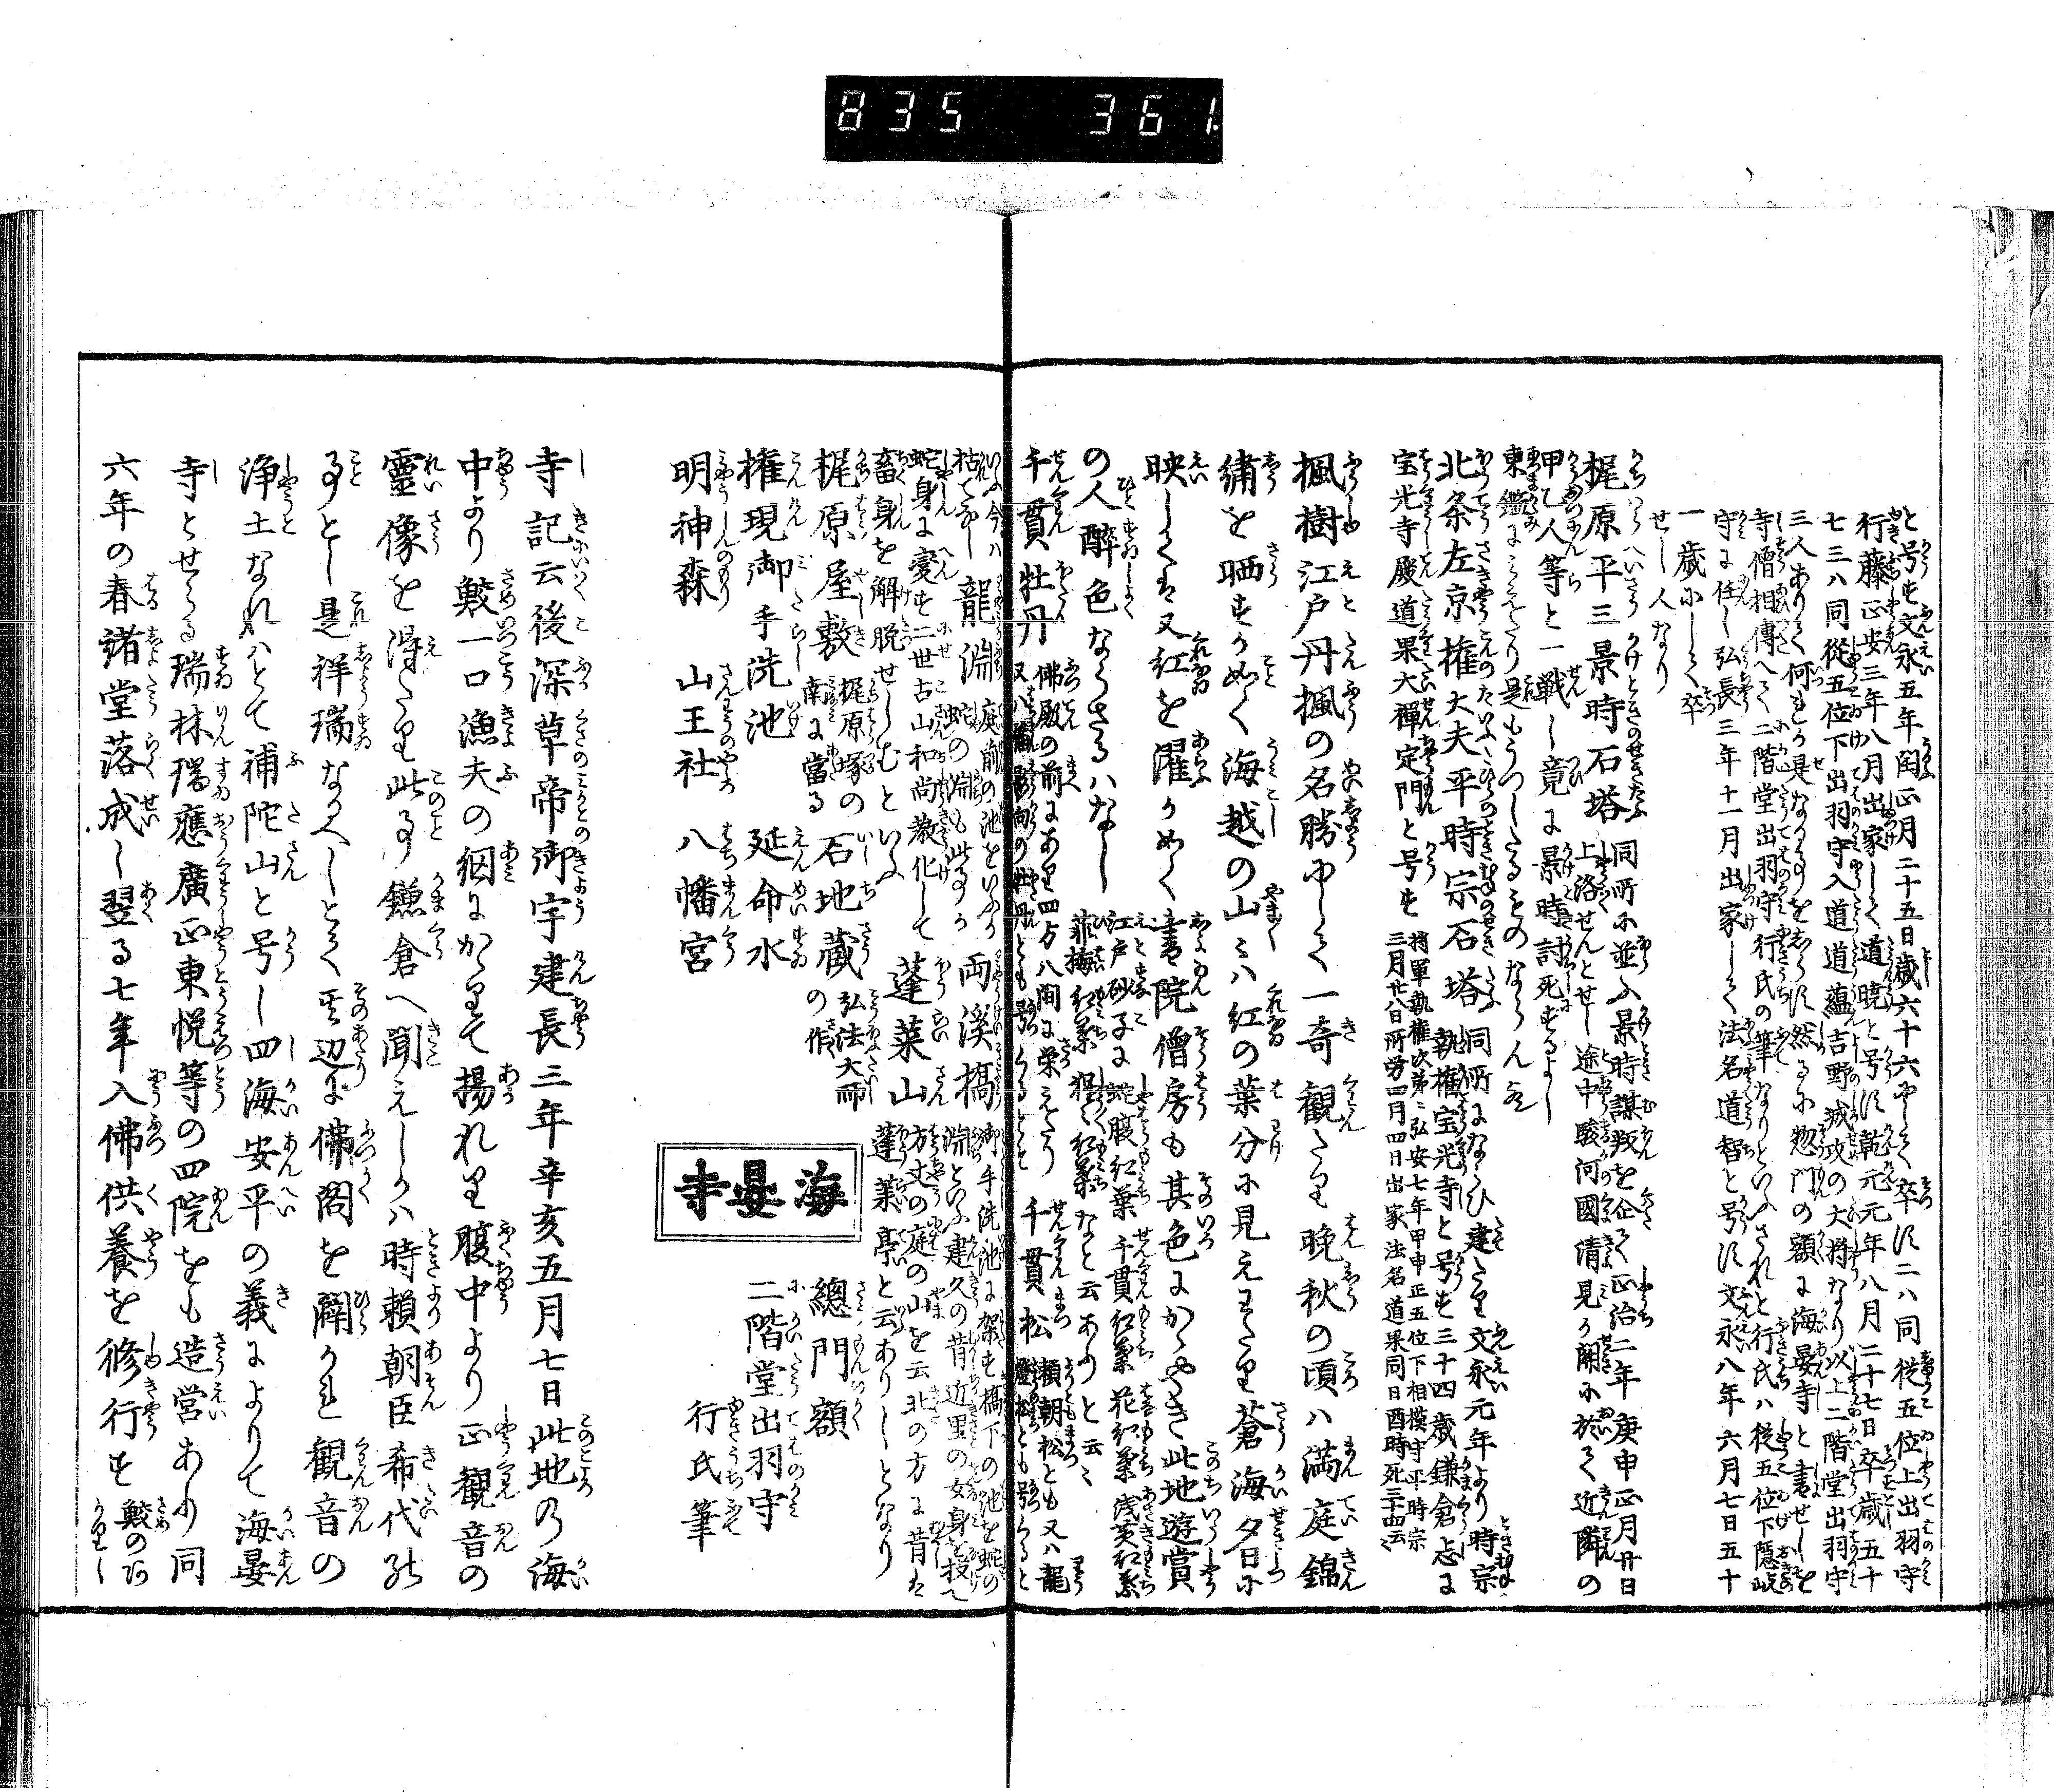 835 361
と号す文永五年閏正月二十五日歳六十六にして卒す二ハ同従五位上出羽守
行藤正安三年八月出家して道暁と号す乾元元年八月二十七日卒歳五十
七三ハ同従五位下出羽守入道道蘊吉野城攻の大将なり以上二階堂出羽守
三人ありて何れか是なる事をしらす然るに惣門の額に海晏寺と書せしを
寺僧相傳へて二階堂出羽守行氏の筆なりといふされと行氏ハ従五位下隠岐
守に任し弘長三年十一月出家して法名道智と号す文永八年六月七日五十
一歳にして卒
せし人なり
梶原平三景時石塔 同所に並ふ景時謀叛を企て正治二年庚申正月廿日
上洛せんとせし途中駿河國清見か関に於て近隣の
甲乙人等と一戦し竟に景時討死するよし
東鑑にみえたり是もうつしたるものならん歟
北条左京権大夫平時宗石塔 同所にならひ建たり文永元年より時宗
執権宝光寺と号す三十四歳鎌倉志に
宝光寺殿道果大禅定門と号す 将軍執権次第ニ弘安七年甲申正五位下相模守平時宗
三月廿八日所労四月四日出家法名道果同日酉時死三十四云云
楓樹江戸丹楓の名勝にして一奇観たり晩秋の頃ハ満庭錦
繍を晒すか如く海越の山々ハ紅の葉分に見えわたり蒼海夕日に
映してハ又紅を濯かめく書院僧房も其色にかゝやき此地遊賞
の人醉色ならさるハなし 江戸砂子に蛇腹紅葉千貫紅葉花紅葉浅黄紅葉
菲梅紅葉猩々紅葉なと云ありと云々
千貫牡丹 佛殿の前にあり四方八間に栄えたり
又ハ影向の牡丹とも号くると 千貫松 頼朝松とも又ハ龍
燈松とも号くると
いふ今ハ
枯てなし 龍淵 庭前の池をいふか
蛇の淵も此事か 両溪橋 御手洗池に架す橋下の池を蛇の
淵といふ建久の昔近里の女身を投て
蛇身に變す二世古山和尚教化して
畜身を解脱せしむといふ 蓬莱山 方丈の庭の山を云北の方に昔は
蓬莱亭と云ありしとなり
梶原屋敷 梶原塚の
南に當る 石地蔵 弘法大師
の作 總門額
権現御手洗池 延命水 二階堂出羽守
明神森 山王社 八幡宮 行氏筆
海晏寺
寺記云後深草帝御宇建長三年辛亥五月七日此地の海
中より鮫一口漁夫の網にかゝりて揚れり腹中より正観音の
靈像を得たり此事鎌倉へ聞えしかハ時頼朝臣希代の
事とし是祥瑞なるへしとて其辺に佛閣を開かれ観音の
浄土なれハとて補陀山と号し四海安平の義によりて海晏
寺とせらる瑞林瑞應廣正東悦等の四院をも造営あり同
六年の春諸堂落成し翌る七年入佛供養を修行す 鮫の
かりし